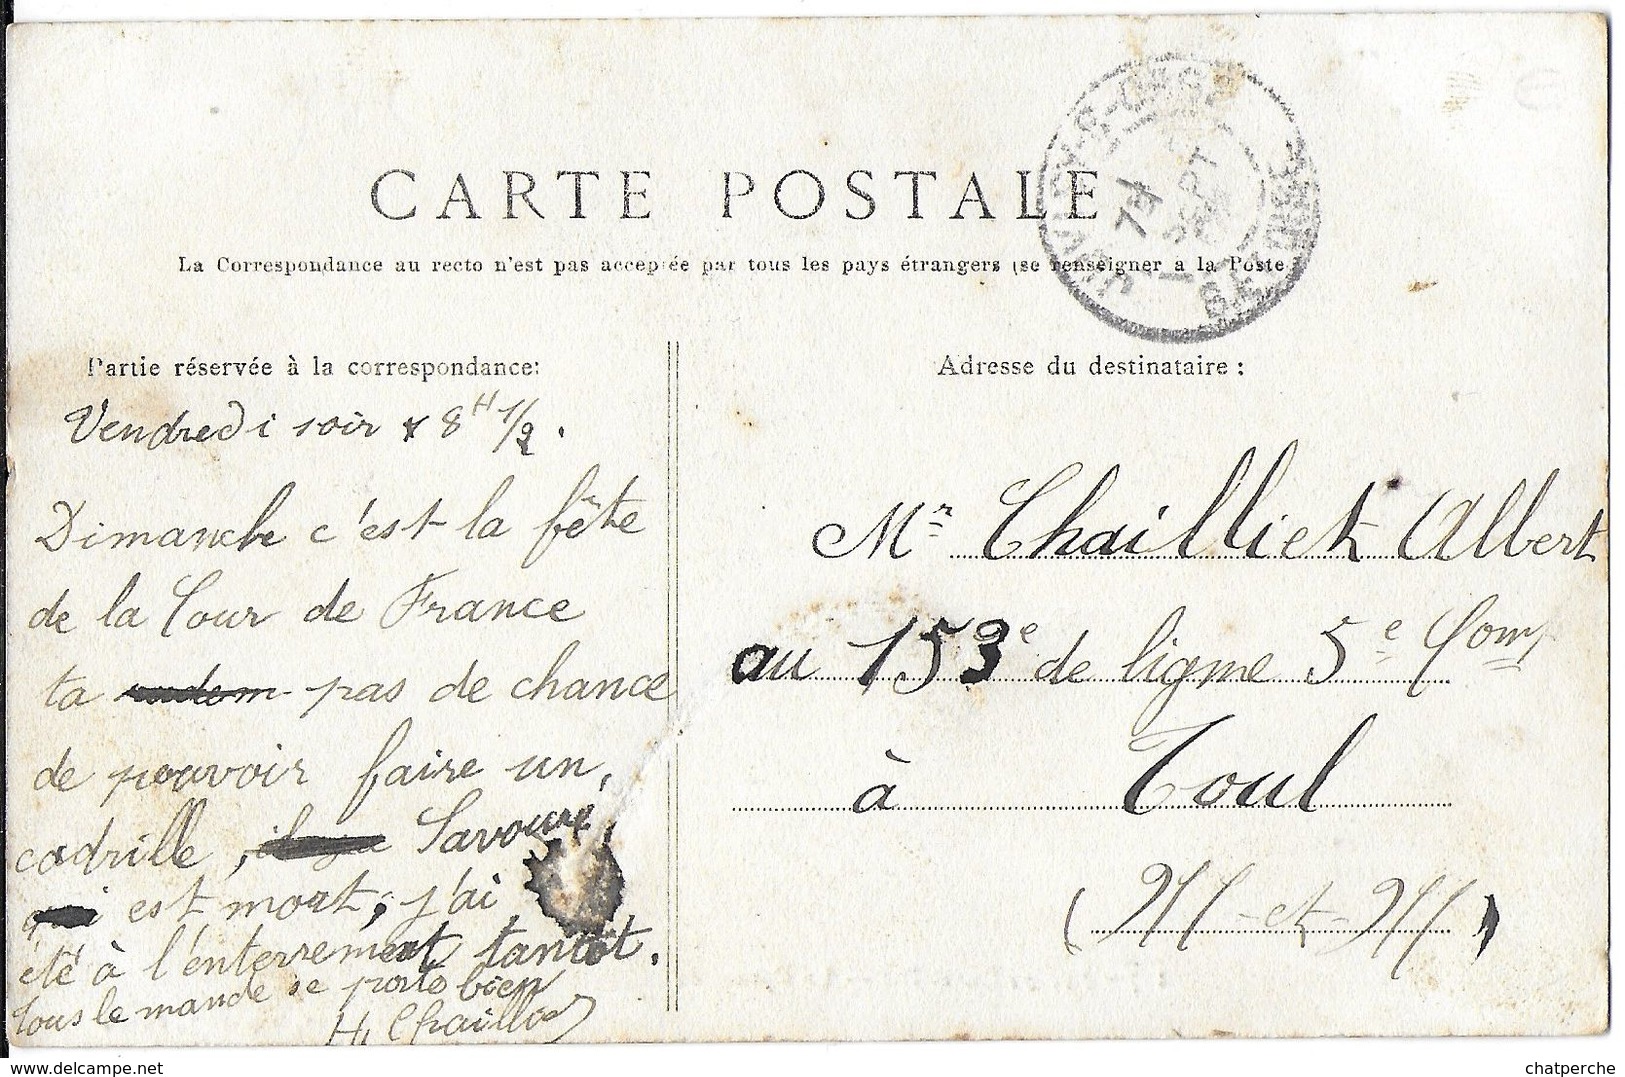 CARTE POSTALE
La Correspondance au recto n'est pas acceptée par tous les pays étrangers (se renseigner a la Poste
JUVISY-S-ORGE
7H
1
SEPT
SEINE-ET-OISE
Partie réservée à la correspondance:
Vendredi soir 8H 1/2.
Dimanche c'est la fête
de la Cour de France
ta pas de chance
de pouvoir faire un
cadrille, Savoure
est mort, j'ai
été à l'enterrement tantôt.
Tous le monde se porte bien
H. Chaillot
Adresse du destinataire :
Mr Chailliet Albert
au 153e de ligne 5e Com
à Toul
(M-et-M)
chatperche